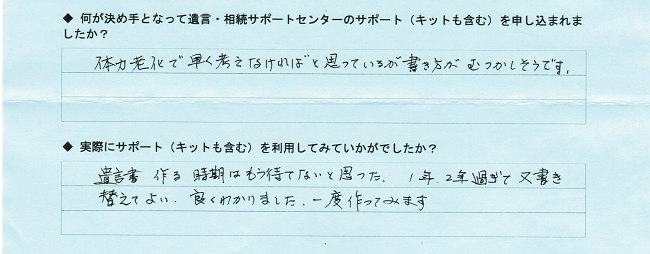 ◆ 何が決め手となって遺言・相続サポートセンターのサポート（キットも含む）を申し込まれま
したか？
体力老化で早く考えなければと思っているが書き方がむつかしそうです。
◆ 実際にサポート（キットも含む）を利用してみていかがでしたか？
遺言書 作る 時期はもう待てないと思った。1年、2年過ぎて又書き
替えてよい、良くわかりました、一度作ってみます